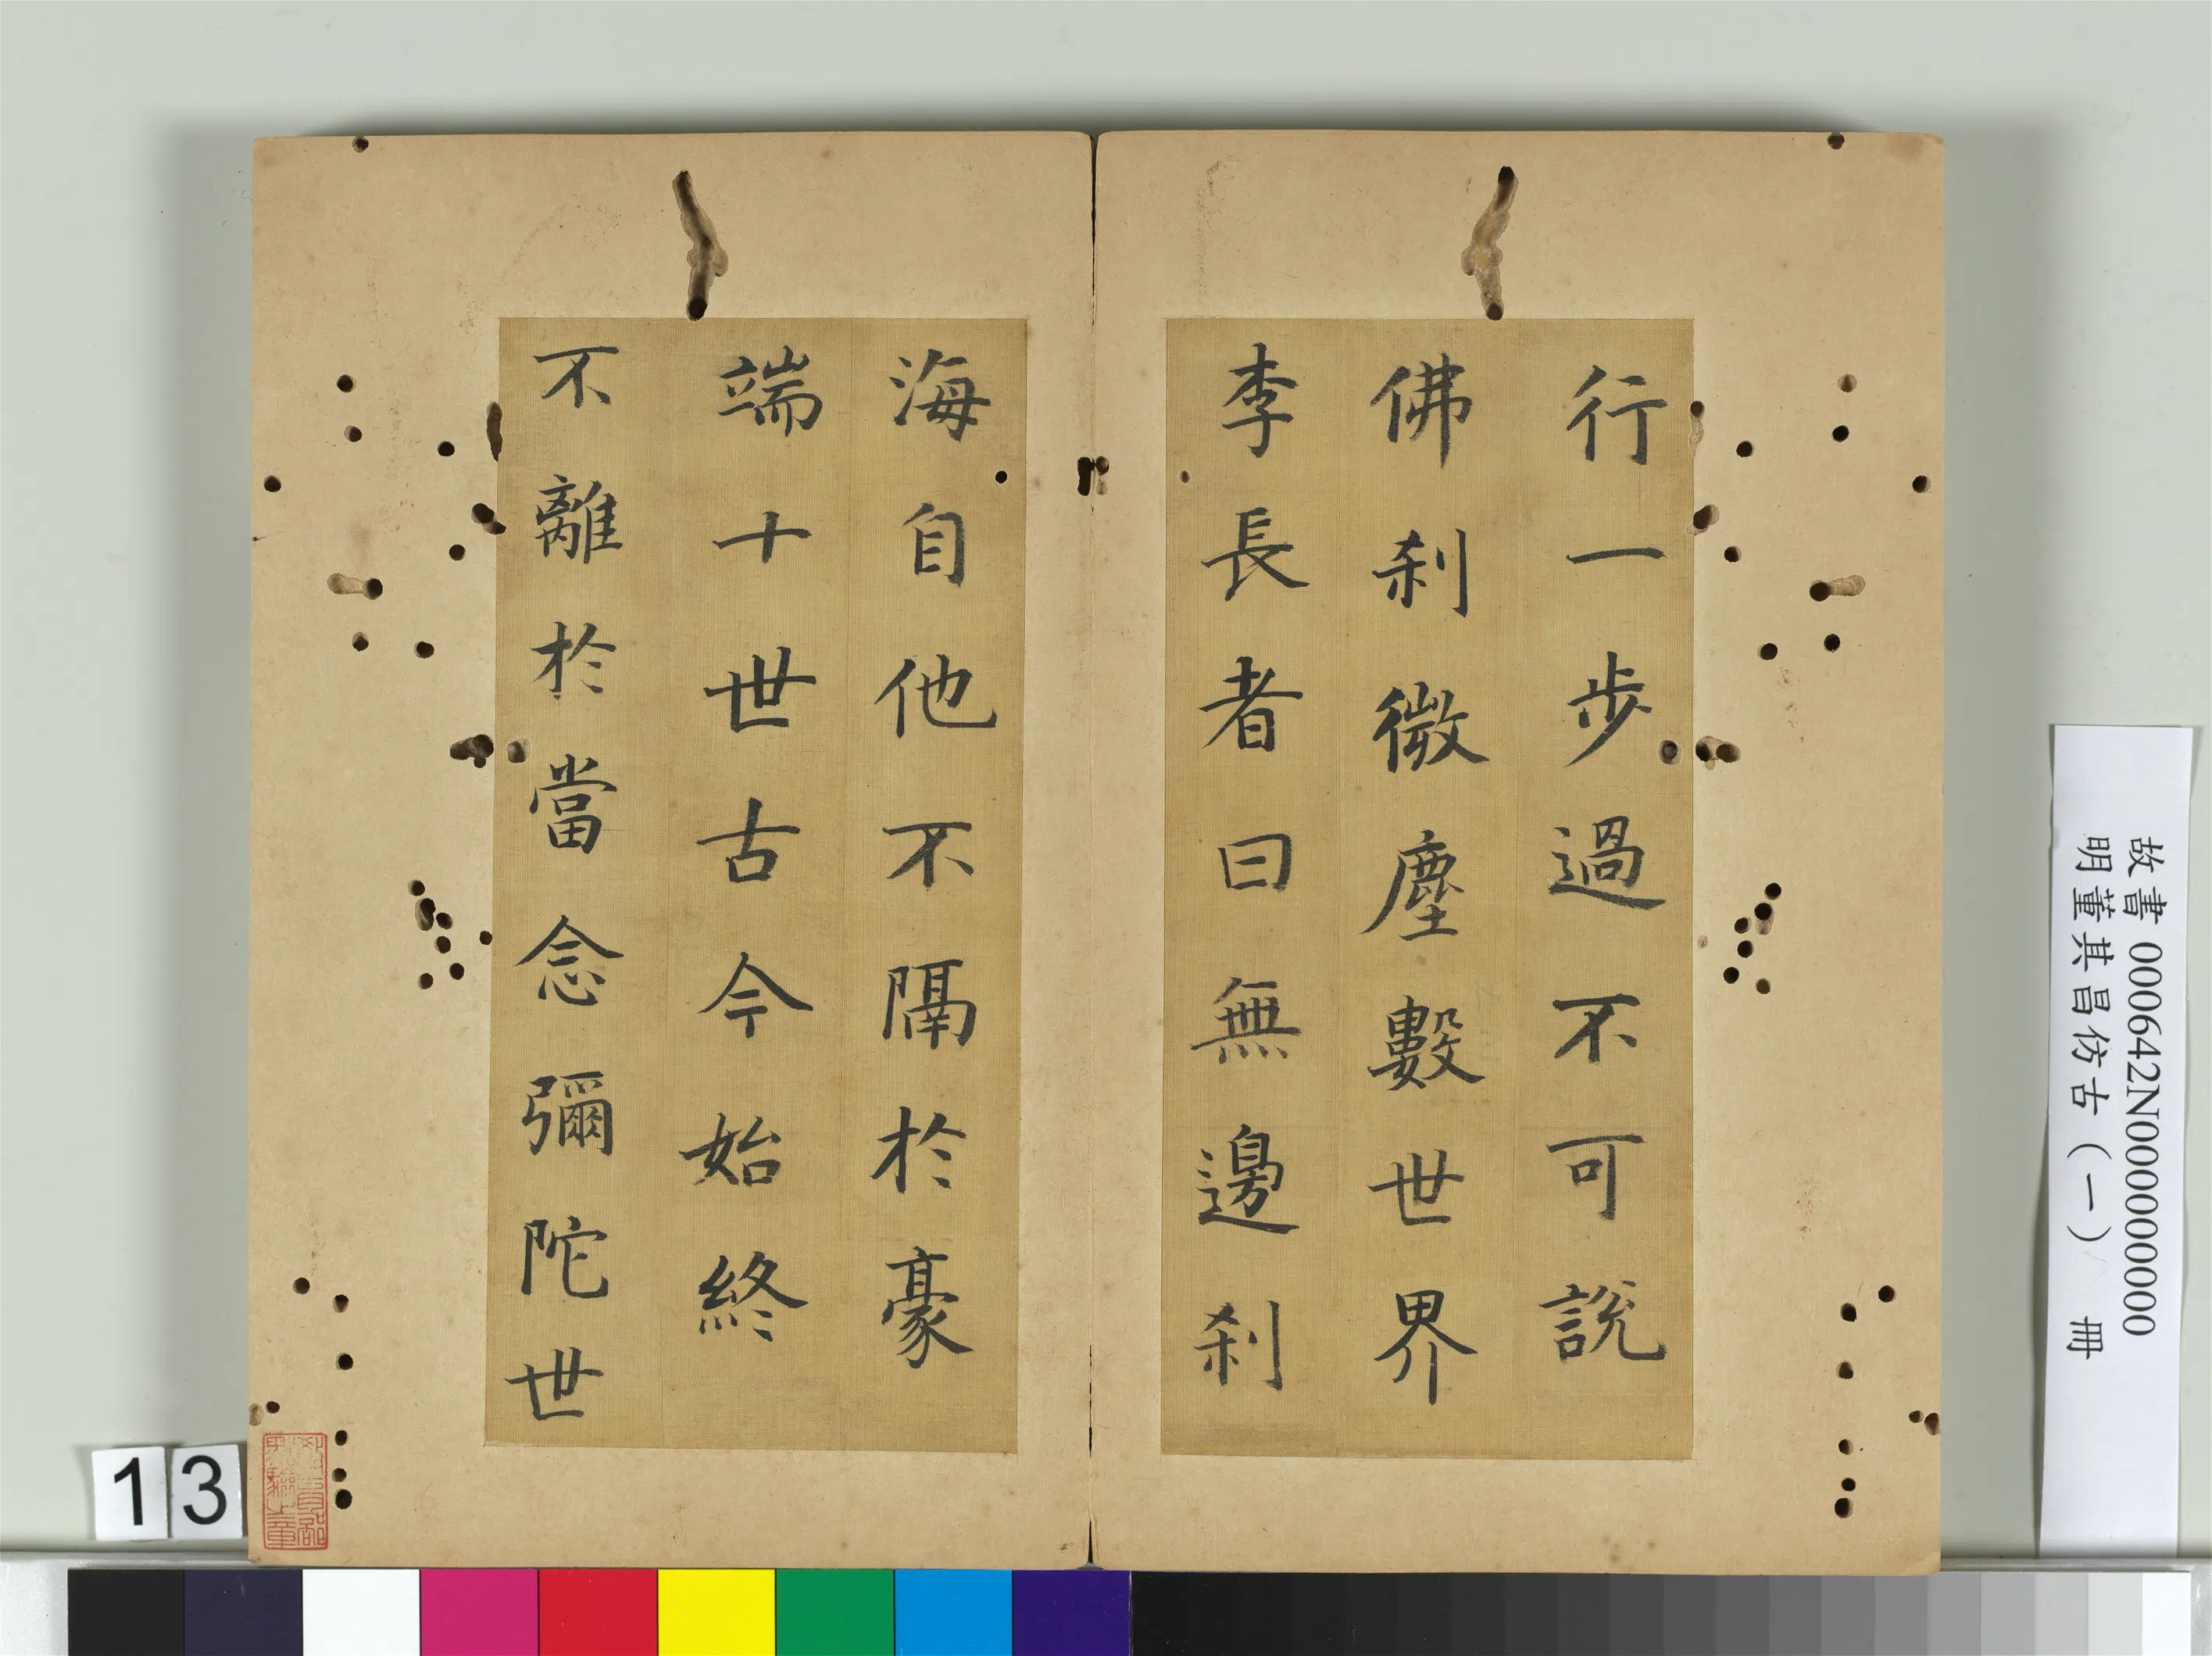 行一步過不可說
佛刹微塵數世界
李長者曰無邊刹
海自他不隔於豪
端十世古今始終
不離於當念彌陀世
故書 000642N000000000
明董其昌仿古（一） 冊
13